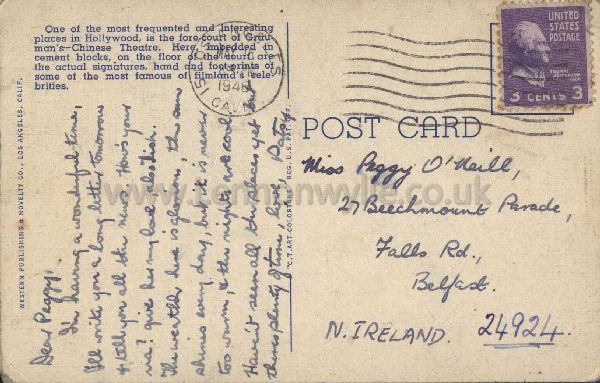 One of the most frequented and interesting
places in Hollywood, is the fore-court of Grau-
man's-Chinese Theatre. Here, imbedded in
cement blocks, on the floor of the court, are
the actual signatures, hand and footprints of
some of the most famous of filmland's cele-
brities.
WESTERN PUBLISHING & NOVELTY CO., LOS ANGELES, CALIF.
Dear Peggy,
I'm having a wonderful time,
I'll write you a long letter tomorrow
& tell you all the news. How's your
ma? give her my love
The weather here is glorious the sun
shines every day, but it is never
too warm, & the nights are cool.
Haven't seen all the places yet but
theres plenty of time, love, Patsy
"C.T. ART-COLORTONE" REG. U.S. PAT. OFF.
CAL
UNITED
STATES
POSTAGE
THOMAS
JEFFERSON
3 CENTS 3
POST CARD
Miss Peggy O'Neill,
27 Beechmount Parade,
Falls Rd.,
Belfast.
N. IRELAND. 24924.